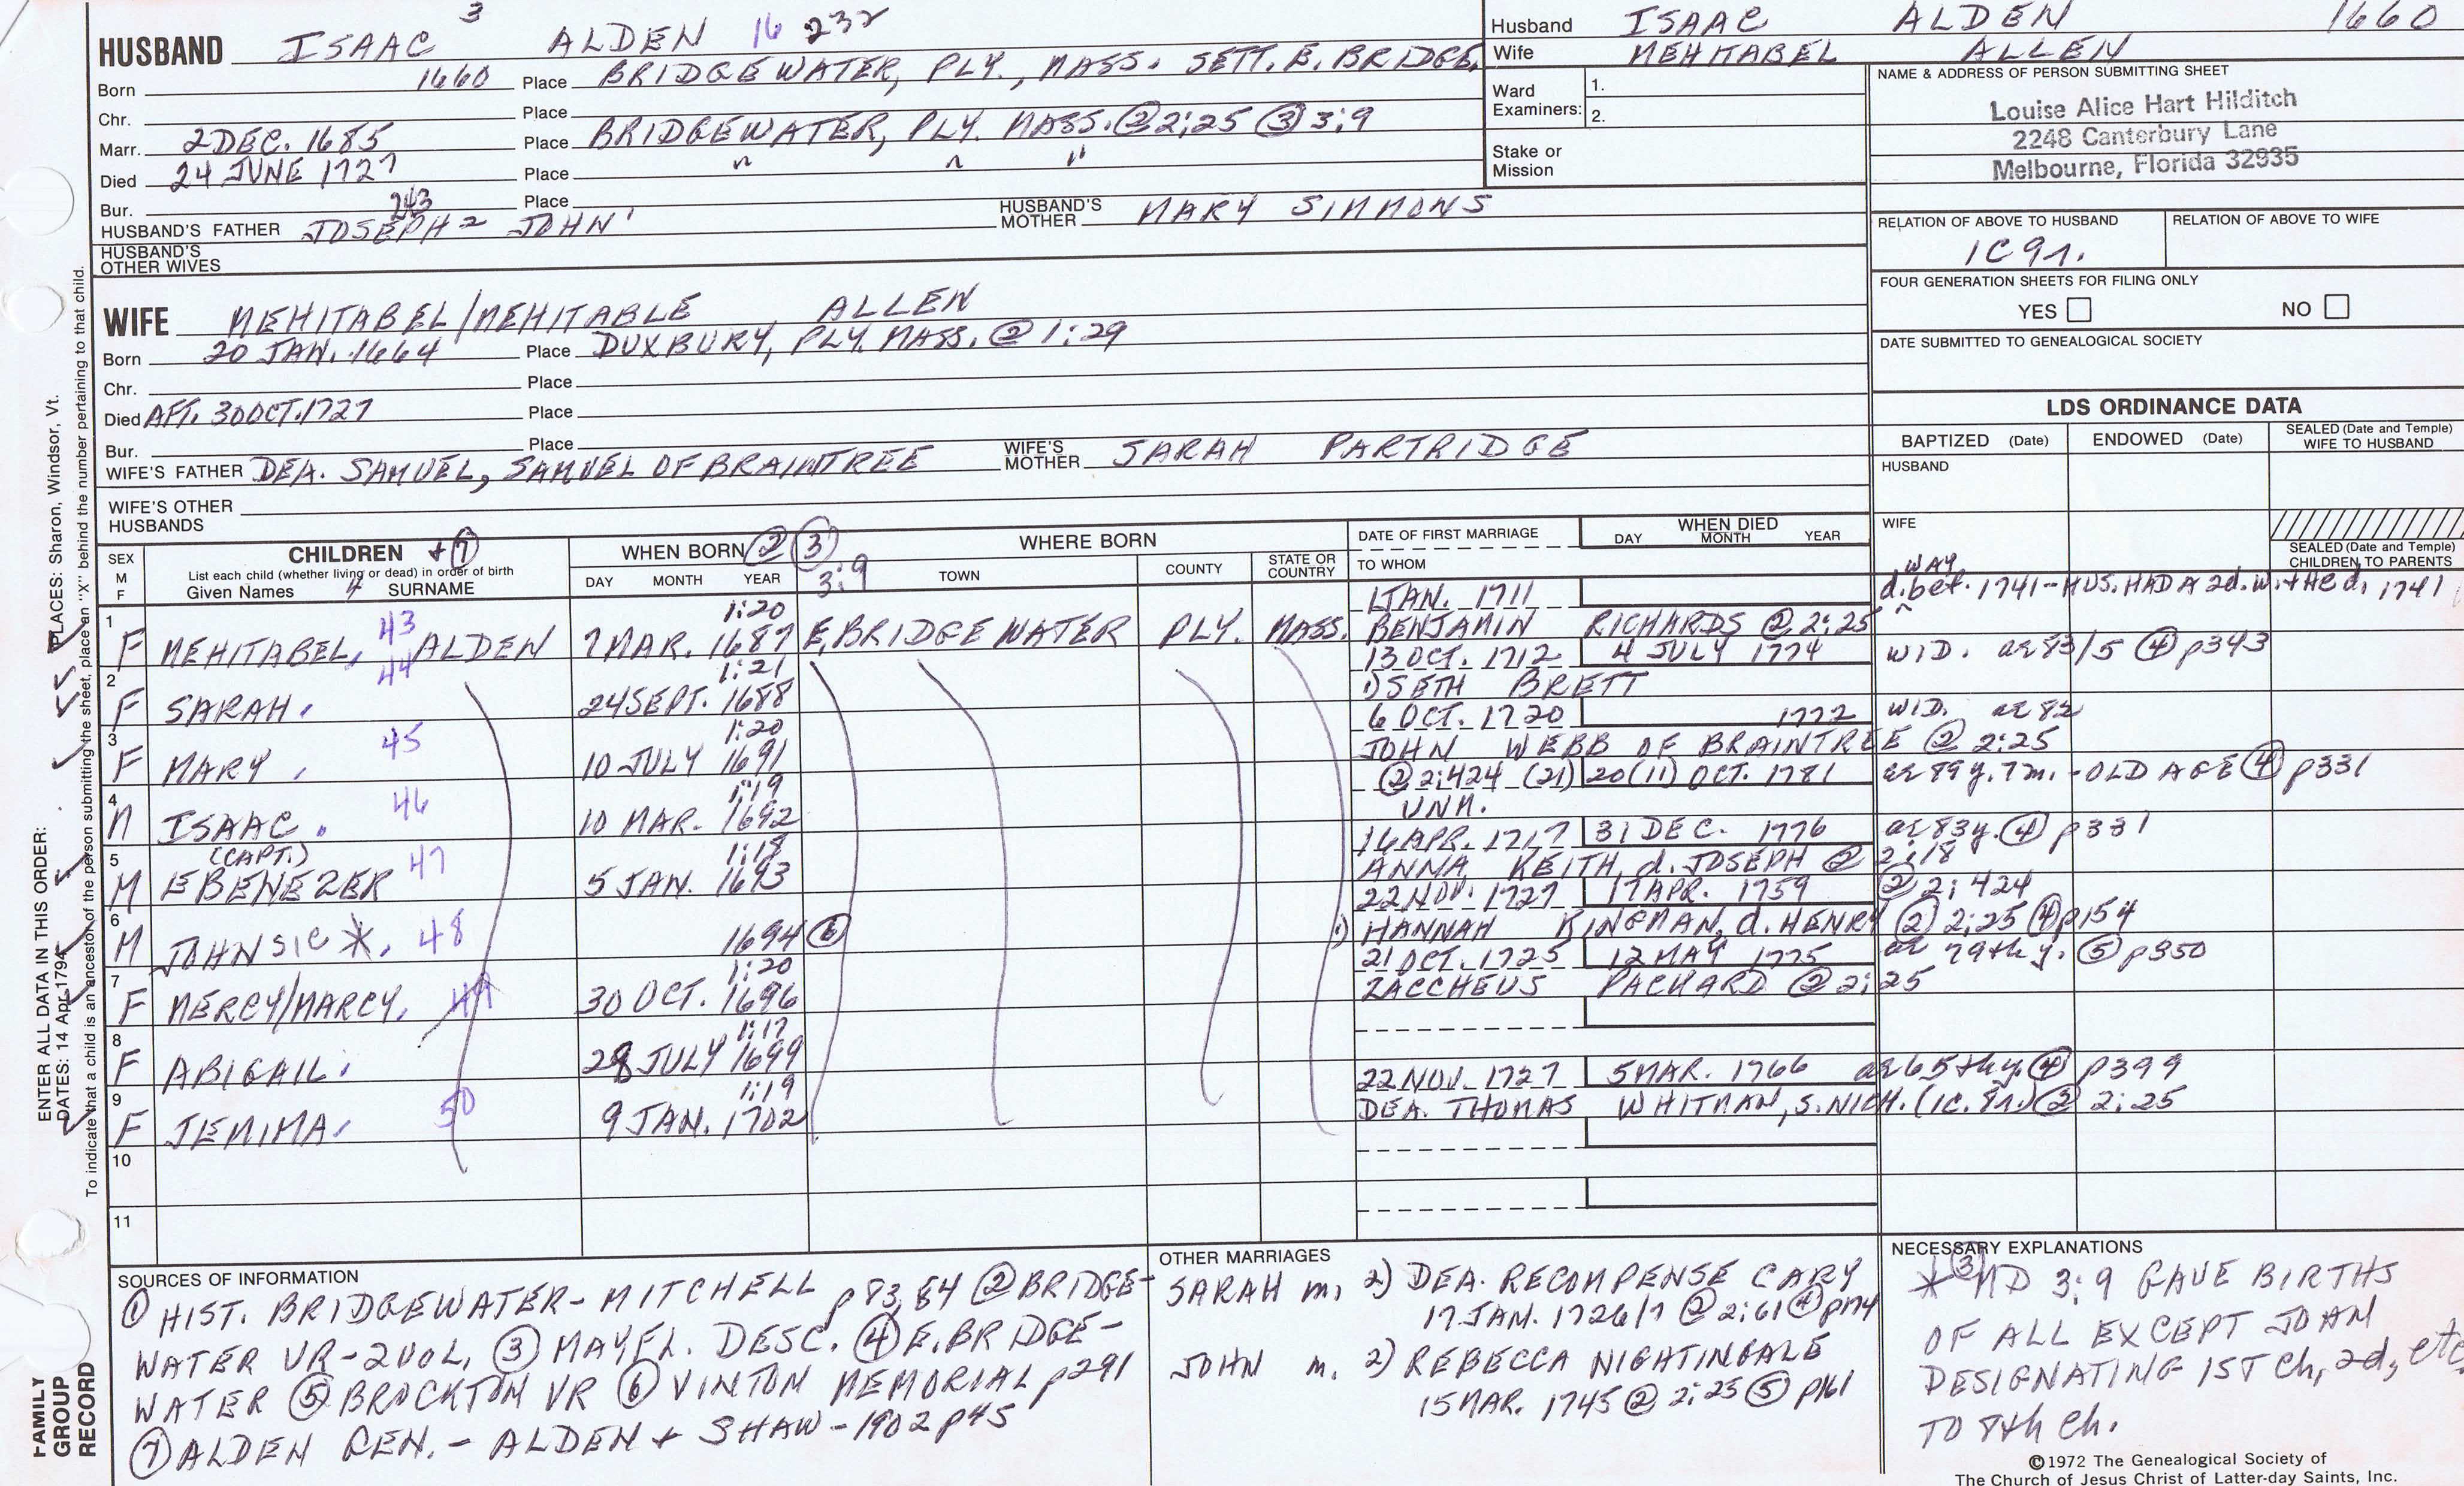 HUSBAND ISAAC 3 ALDEN 16 232
Born 1660 Place BRIDGEWATER, PLY., MASS. SETT. E. BRIDGE.
Chr. Place
Marr. 2 DEC. 1685 Place BRIDGEWATER, PLY. MASS. @ 2:25 ③ 3:9
Died 24 JUNE 1727 Place " " "
Bur. Place
HUSBAND'S FATHER 243 JOSEPH 2 JOHN 1 HUSBAND'S MOTHER MARY SIMMONS
HUSBAND'S OTHER WIVES
Husband ISAAC ALDEN 1660
Wife MEHITABEL ALLEN
Ward Examiners: 1.
2.
Stake or Mission
NAME & ADDRESS OF PERSON SUBMITTING SHEET
Louise Alice Hart Hilditch
2248 Canterbury Lane
Melbourne, Florida 32935
RELATION OF ABOVE TO HUSBAND RELATION OF ABOVE TO WIFE
1C 9r.
FOUR GENERATION SHEETS FOR FILING ONLY
YES NO
DATE SUBMITTED TO GENEALOGICAL SOCIETY
WIFE MEHITABEL/MEHITABLE ALLEN
Born 20 JAN. 1664 Place DUXBURY, PLY. MASS. @ 1:29
Chr. Place
Died AFT. 30 OCT. 1727 Place
Bur. Place
WIFE'S FATHER DEA. SAMUEL, SAMUEL OF BRAINTREE WIFE'S MOTHER SARAH PARTRIDGE
WIFE'S OTHER HUSBANDS
LDS ORDINANCE DATA
BAPTIZED (Date) ENDOWED (Date) SEALED (Date and Temple) WIFE TO HUSBAND
HUSBAND
WIFE
SEALED (Date and Temple) CHILDREN TO PARENTS
SEX M F CHILDREN + ⑦ WHEN BORN ② ③ 3:9 WHERE BORN DATE OF FIRST MARRIAGE WHEN DIED
List each child (whether living or dead) in order of birth
Given Names 4 SURNAME DAY MONTH YEAR TOWN COUNTY STATE OR COUNTRY TO WHOM DAY MONTH YEAR
1 F MEHITABEL. 43 ALDEN 7 MAR. 1687 1:20 E. BRIDGEWATER PLY. MASS. 1 JAN. 1711 WAY d. bef. 1741 - HUS. HAD A 2d. w. + HE d. 1741
BENJAMIN RICHARDS @ 2:25
2 F SARAH. 44 24 SEPT. 1688 1:21 13 OCT. 1712 4 JULY 1774 WID. ae 83/5 ④ p343
1) SETH BRETT
3 F MARY. 45 10 JULY 1691 1:20 6 OCT. 1720 1772 WID. ae 82
JOHN WEBB OF BRAINTREE @ 2:25
4 M ISAAC. 46 10 MAR. 1692 1:19 ② 2:424 (21) 20 (11) OCT. 1781 ae 89 y. 7 m. - OLD AGE ④ p331
UNM.
5 M (CAPT.) EBENEZER 47 5 JAN. 1693 1:18 16 APR. 1717 31 DEC. 1776 ae 83 y. ④ p331
ANNA KEITH, d. JOSEPH @ 2:18
6 M JOHN SIC *. 48 1694 ⑥ 22 NOV. 1727 17 APR. 1759 ② 2:424
1) HANNAH KINGMAN, d. HENRY ② 2:25 ④ p154
7 F MERCY/MARCY. 49 30 OCT. 1696 1:20 21 OCT. 1725 12 MAY 1775 ae 79th y. ⑤ p350
ZACCHEUS PACKARD @ 2:25
8 F ABIGAIL. 28 JULY 1699 1:17
9 F JEMIMA. 50 9 JAN. 1702 1:19 22 NOV. 1727 5 MAR. 1766 ae 65th y. ④ p399
DEA. THOMAS WHITMAN, S. NICH. (1C. 8r.) ② 2:25
10
11
SOURCES OF INFORMATION
① HIST. BRIDGEWATER - MITCHELL p 83, 84 ② BRIDGE-
WATER VR - 2 VOL, ③ MAYFL. DESC. ④ E. BRIDGE-
WATER ⑤ BROCKTON VR ⑥ VINTON MEMORIAL p 291
⑦ ALDEN GEN. - ALDEN + SHAW - 1902 p 45
OTHER MARRIAGES
SARAH m. 2) DEA. RECOMPENSE CARY
17 JAN. 1726/7 @ 2:61 ④ p174
JOHN m. 2) REBECCA NIGHTINGALE
15 MAR. 1745 @ 2:25 ⑤ p161
NECESSARY EXPLANATIONS
* ③ MD 3:9 GAVE BIRTHS
OF ALL EXCEPT JOHN
DESIGNATING 1ST Ch, 2d, etc
TO 8th Ch.
©1972 The Genealogical Society of
The Church of Jesus Christ of Latter-day Saints, Inc.
ENTER ALL DATA IN THIS ORDER:
DATES: 14 Apr 1794 PLACES: Sharon, Windsor, Vt.
To indicate that a child is an ancestor of the person submitting the sheet, place an "X" behind the number pertaining to that child.
FAMILY
GROUP
RECORD